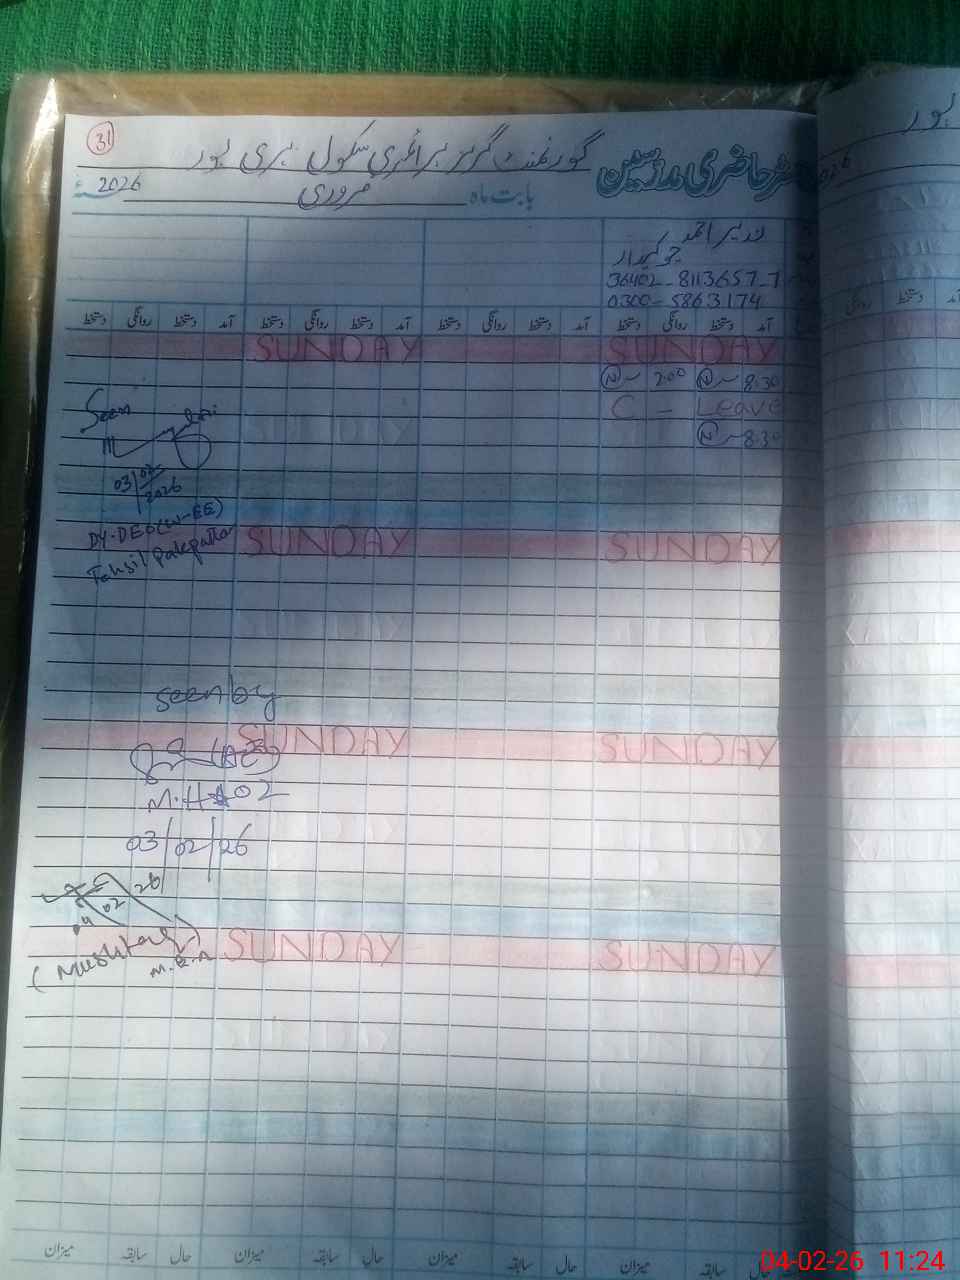 31
رجسٹر حاضری مدرسین گورنمنٹ گرلز پرائمری سکول ہری پور
بابت ماہ فروری 2026
نذیر احمد
چوکیدار
36402-8113657-7
0300-5863174
آمد دستخط روانگی دستخط آمد دستخط روانگی دستخط آمد دستخط روانگی دستخط آمد دستخط روانگی دستخط
SUNDAY SUNDAY
8:30 N 2:00 N
C - Leave
8:30 N
Seen
03/02/2026
DY-DEO(W-EE)
Tehsil Pakpattan
SUNDAY SUNDAY
seen by
(AEO)
M.H 02
03/02/26
SUNDAY SUNDAY
04 02 26
(Mushtaq)
M.E.A
SUNDAY SUNDAY
میزان حال سابقہ میزان حال سابقہ میزان حال سابقہ میزان حال سابقہ
04-02-26 11:24